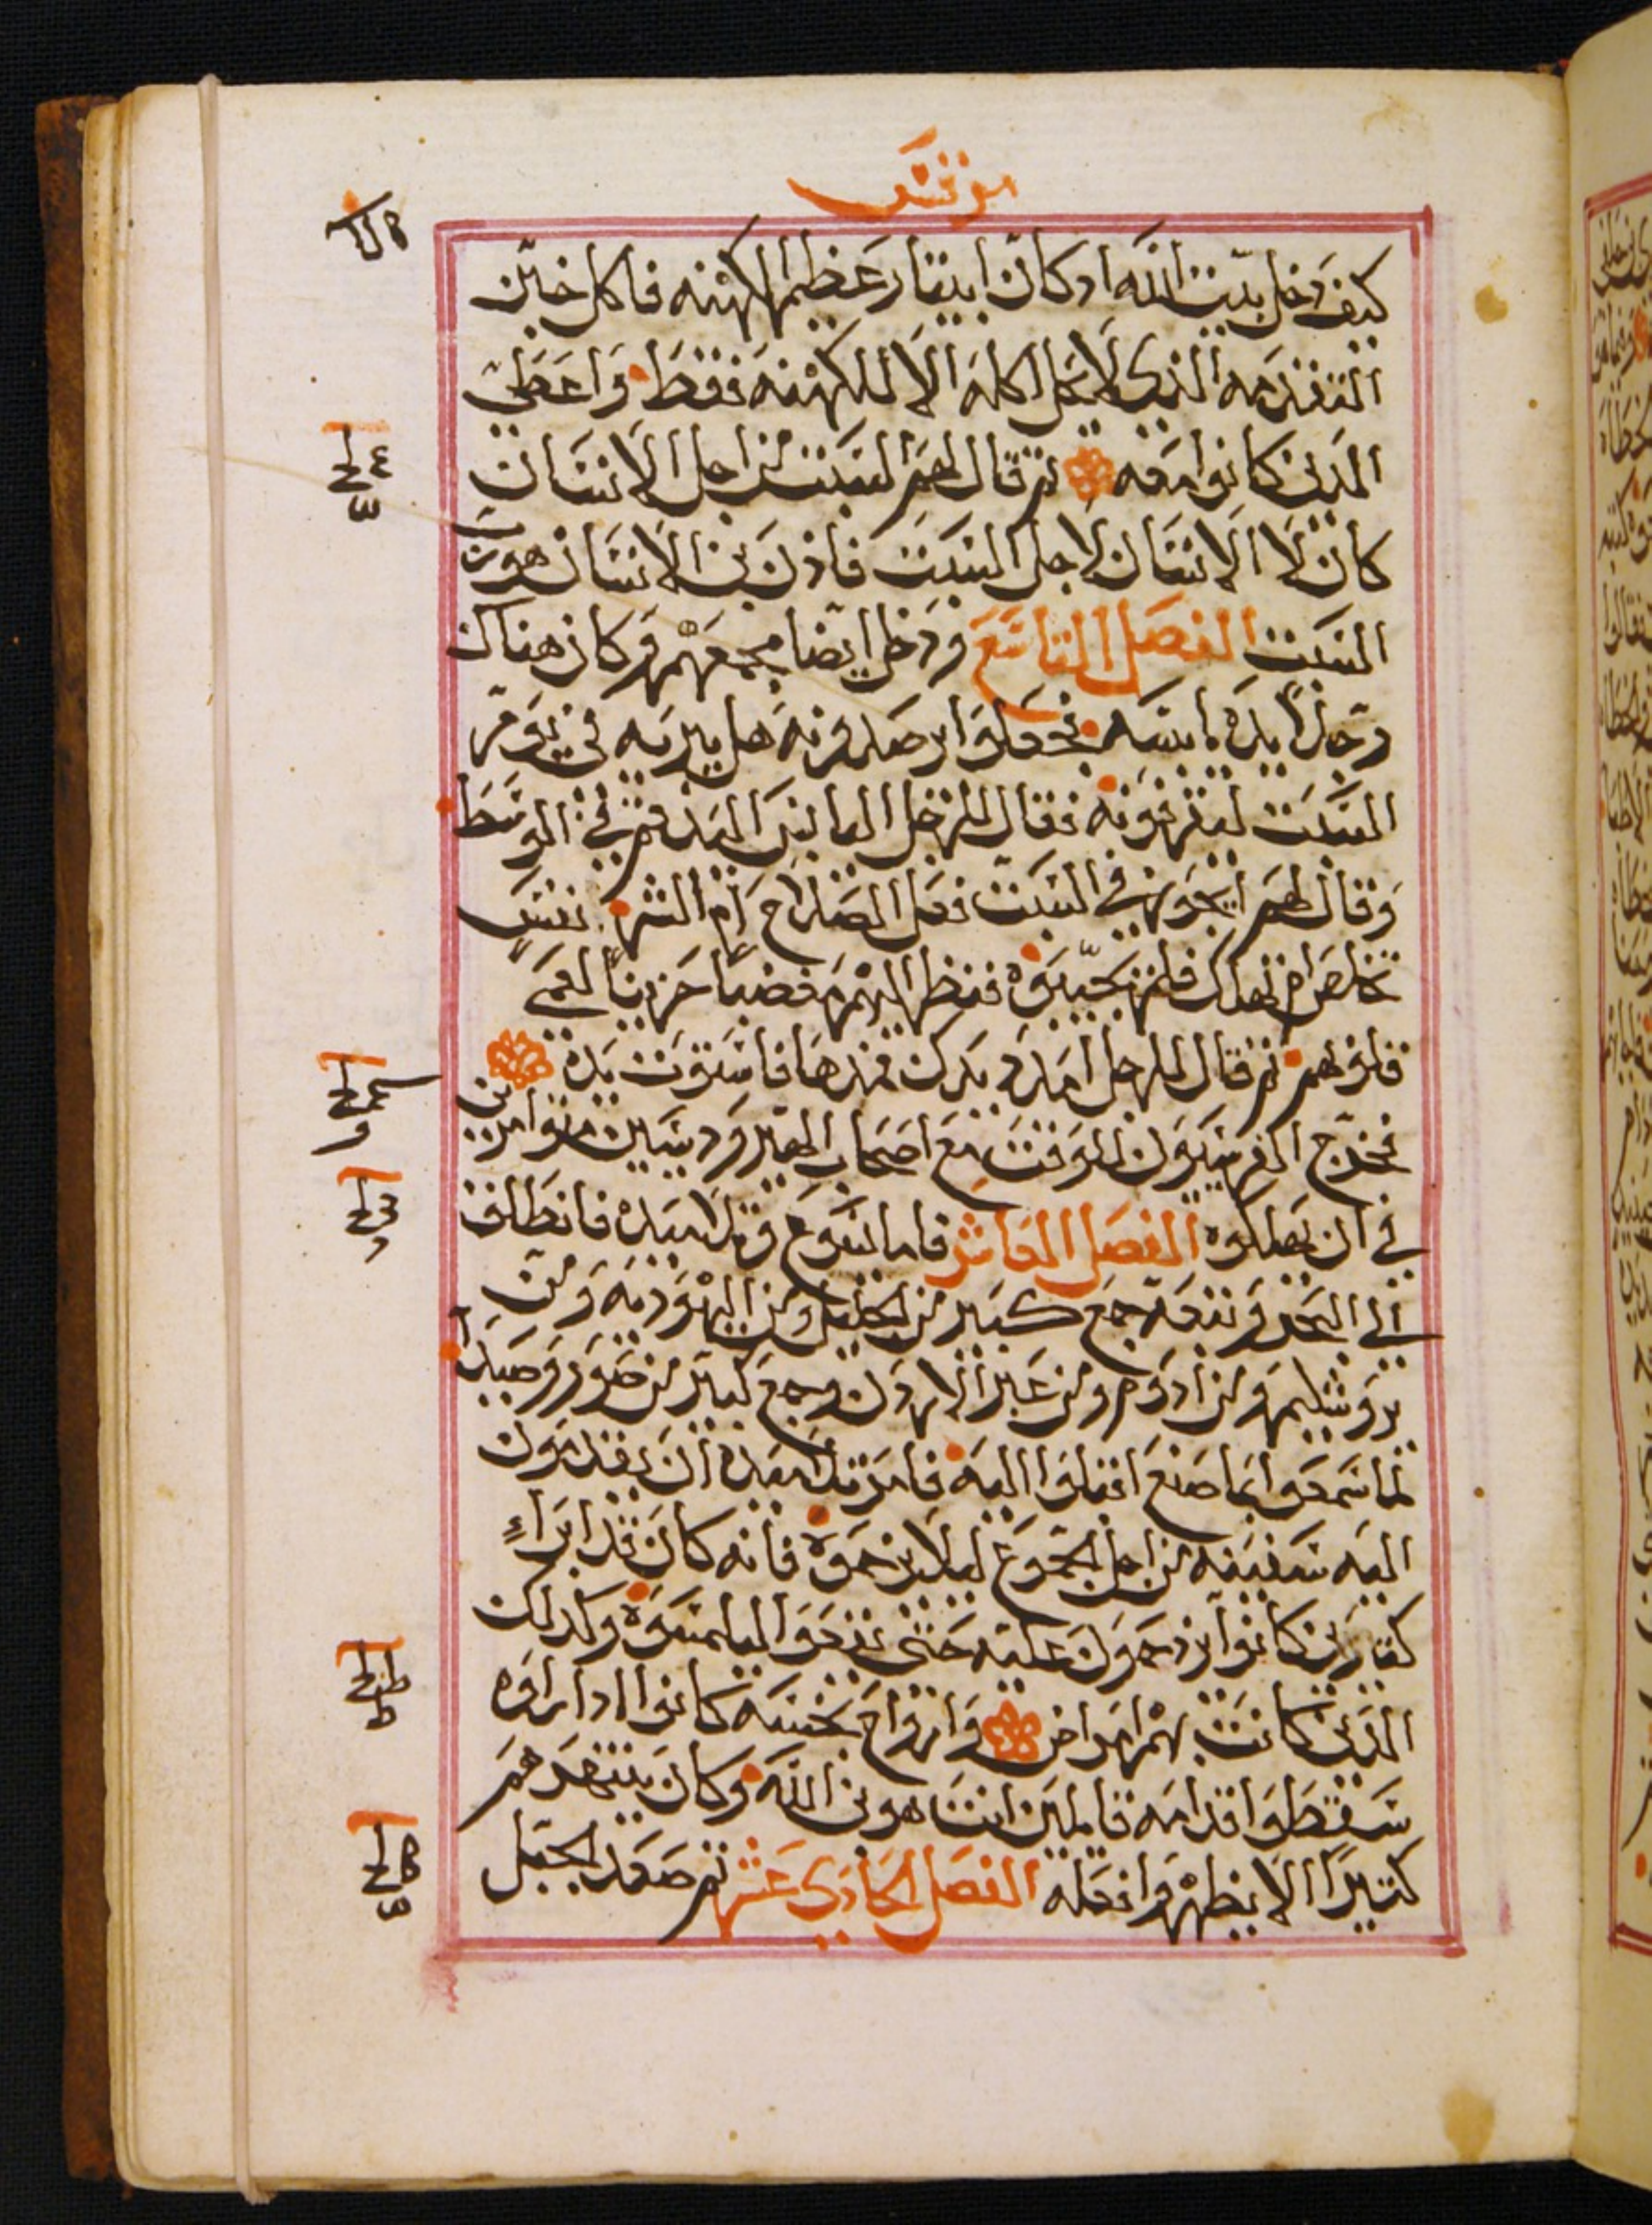 مرقس
كيف دخل بيت الله اد كان ابيتار عظيم الكهنه فاكل خبز
التقدمه الذي لا يحل اكله الا للكهنه فقط واعطي
الدين كانوا معه تم قال لهم السبت من اجل الانسان
كان لا الانسان لاجل السبت فاذن بن الانسان هو رب
السبت الفصل التاسع ودخل ايضا مجمعهم وكان هناك
رجلا يده يابسه فجعلوا يرصدونه هل يبريه في يوم
السبت ليقرفونه فقال للرجل اليابس اليد قم في الوسط
وقال لهم ايجوز في السبت فعل الصلاح ام الشر نفس
تخلص ام تهلك فلم يجيبوه فنظر اليهم مغضبا حزينا لعمي
قلوبهم تم قال للرجل امدد يدك فمدها فاستوت يده
فخرج الفريسيون للوقت مع اصحاب هيرودس متوامرين
في ان يهلكوه الفصل العاشر فاما يسوع وتلاميده فانطلق
الي البحر وتبعه جمع كبير من الجليل ومن اليهوديه ومن
يروشليم ومن ادوم ومن عبر الاردن وجمع كبير من صور وصيدا
لما سمعوا بما صنع اقبلوا اليه فامر تلاميده ان يقدمون
اليه سفينه من اجل الجموع ليلا يزحموه فانه كان قد ابراء
كتيرين كانوا يزدحمون عليه حتى يقعوا ليلمسوه وكدلك
الدين كانت بهم امراض وارواح نجسه كانوا ادا راوه
سقطوا قدامه قايلين انت هو بن الله وكان ينتهرهم
كتيرا الا يظهروا فعله الفصل الحادي عشر تم صعد الجبل